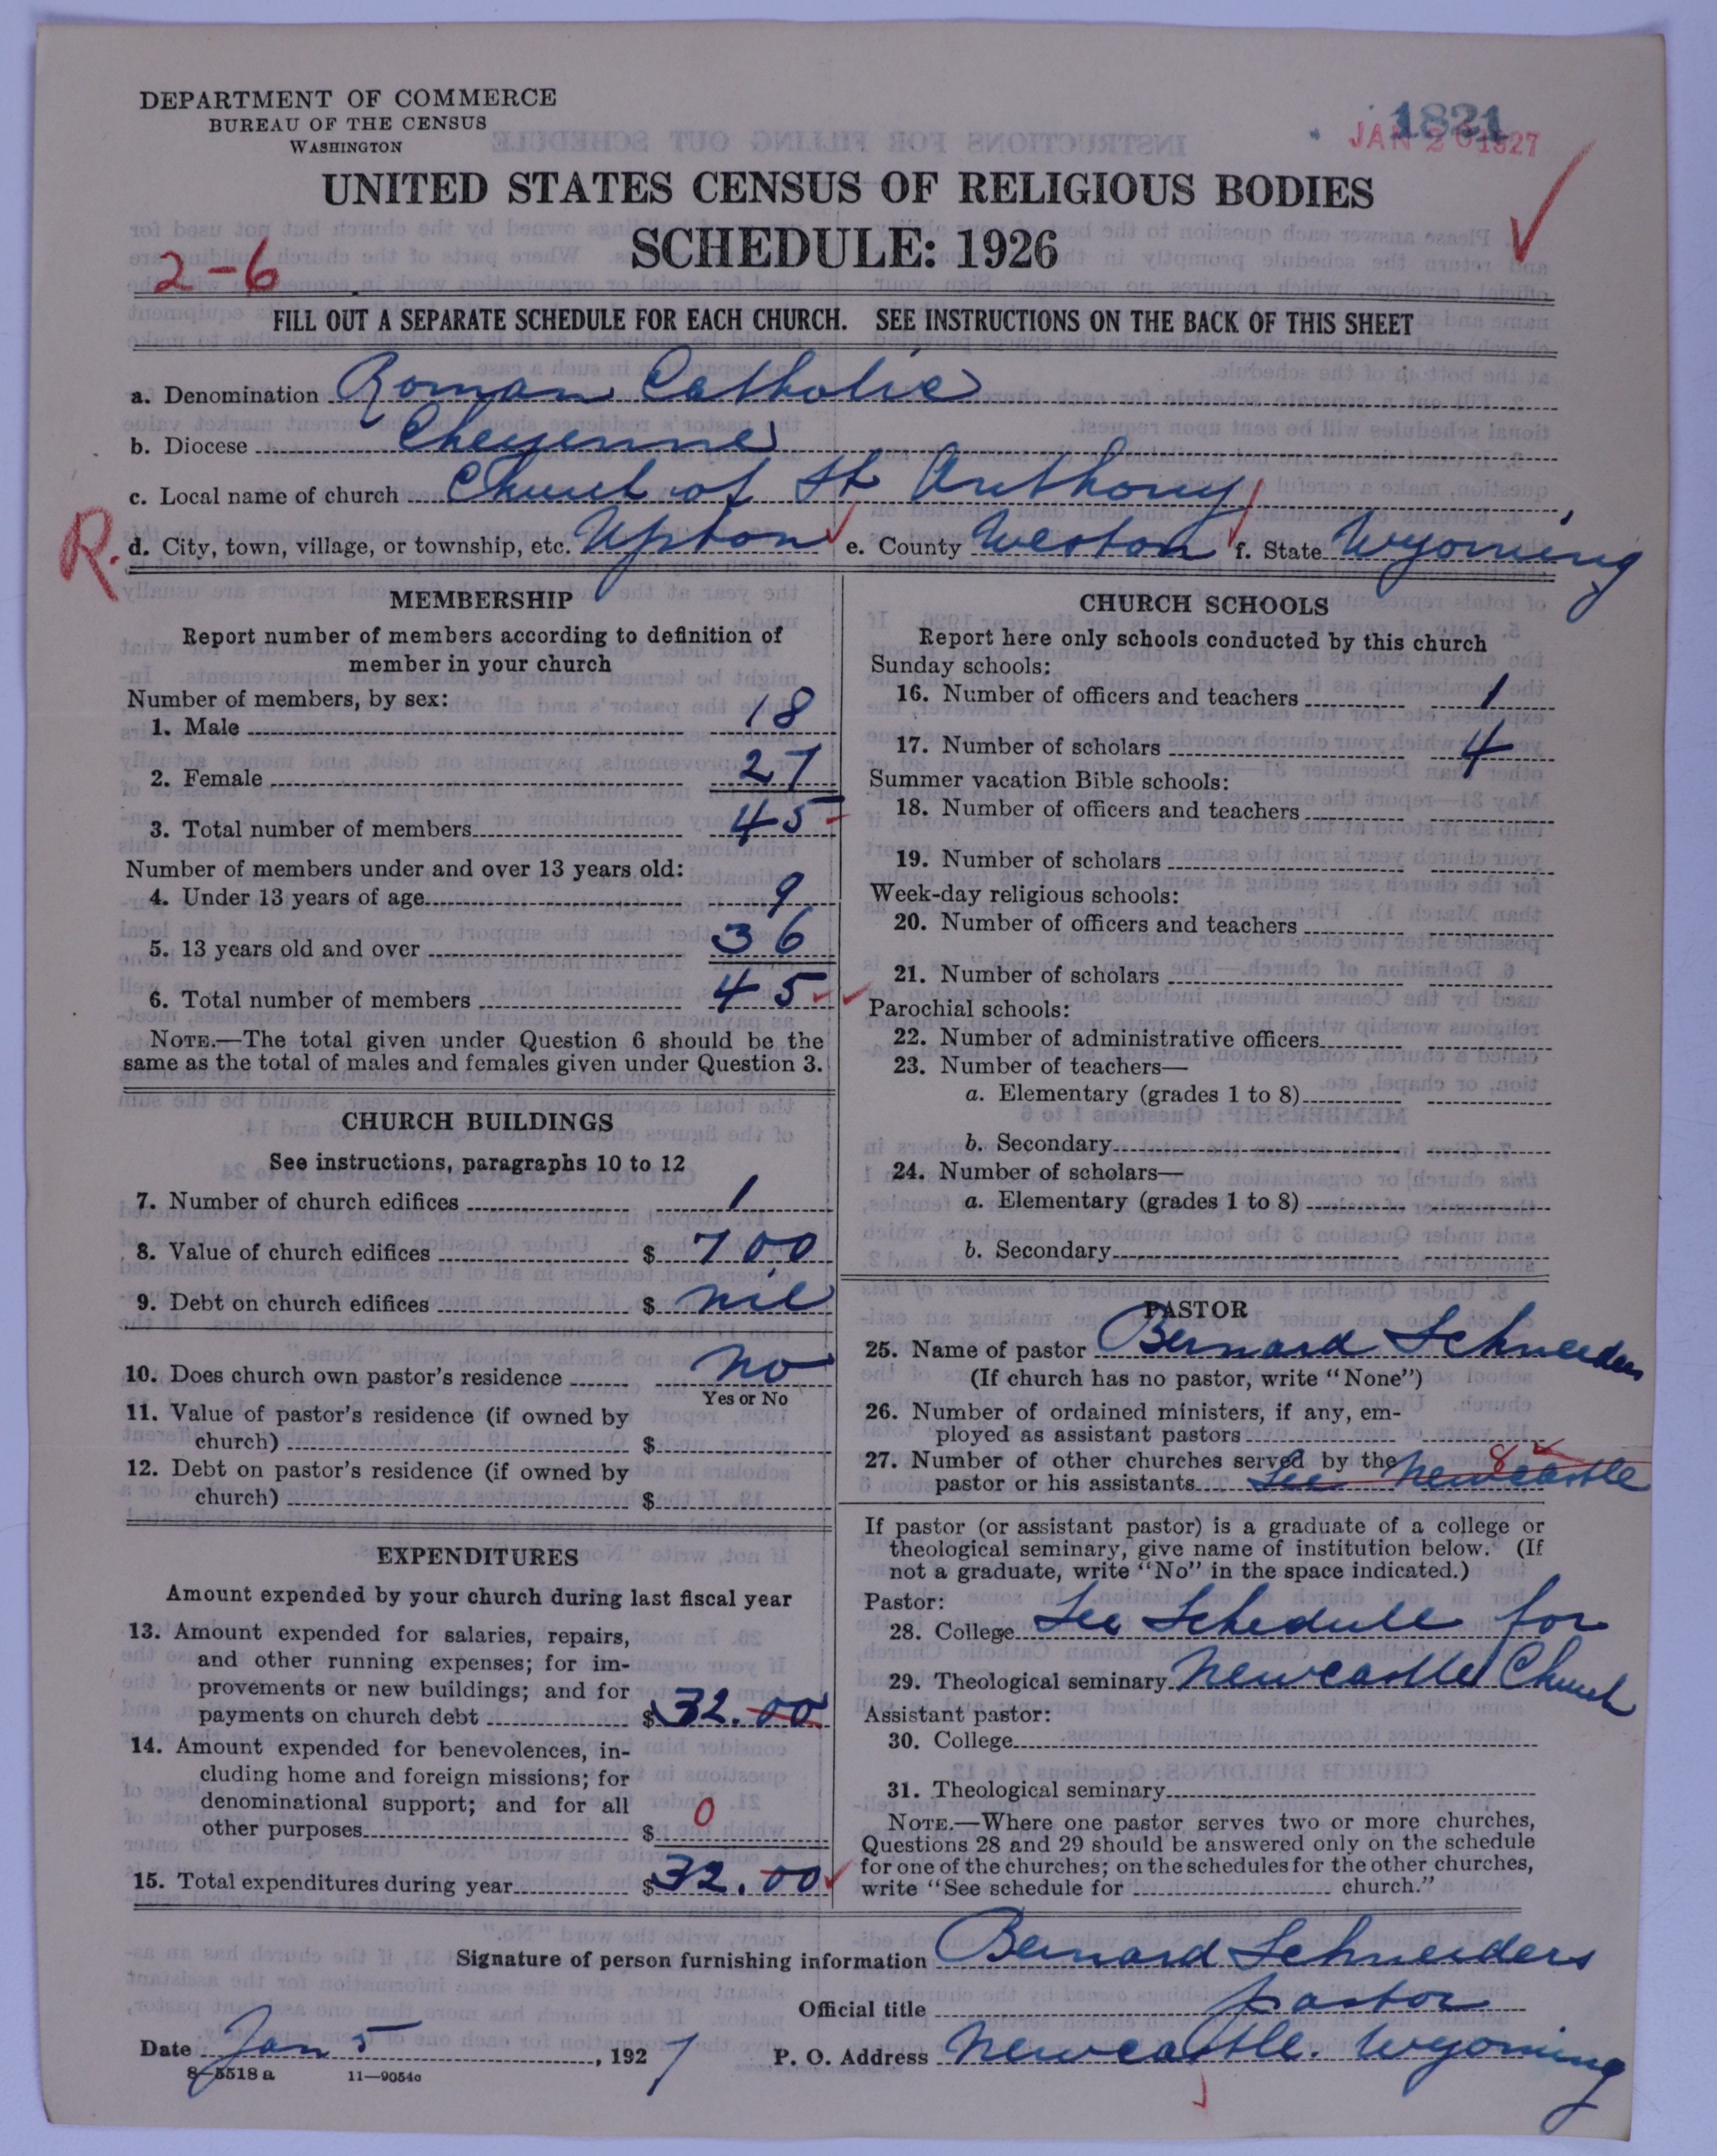 DEPARTMENT OF COMMERCE
BUREAU OF THE CENSUS
WASHINGTON
1821
JAN 2 1927
UNITED STATES CENSUS OF RELIGIOUS BODIES
SCHEDULE: 1926
2-6
FILL OUT A SEPARATE SCHEDULE FOR EACH CHURCH. SEE INSTRUCTIONS ON THE BACK OF THIS SHEET
a. Denomination Roman Catholic
b. Diocese Cheyenne
c. Local name of church Church of St Anthony
R. d. City, town, village, or township, etc. Upton e. County Weston f. State Wyoming
MEMBERSHIP
Report number of members according to definition of
member in your church
Number of members, by sex:
1. Male 18
2. Female 27
3. Total number of members 45
Number of members under and over 13 years old:
4. Under 13 years of age 9
5. 13 years old and over 36
6. Total number of members 45
NOTE.—The total given under Question 6 should be the
same as the total of males and females given under Question 3.
CHURCH BUILDINGS
See instructions, paragraphs 10 to 12
7. Number of church edifices 1
8. Value of church edifices $ 700
9. Debt on church edifices $ nil
10. Does church own pastor's residence No
Yes or No
11. Value of pastor's residence (if owned by
church) $
12. Debt on pastor's residence (if owned by
church) $
EXPENDITURES
Amount expended by your church during last fiscal year
13. Amount expended for salaries, repairs,
and other running expenses; for im-
provements or new buildings; and for
payments on church debt $ 32.00
14. Amount expended for benevolences, in-
cluding home and foreign missions; for
denominational support; and for all
other purposes $ 0
15. Total expenditures during year $ 32.00
CHURCH SCHOOLS
Report here only schools conducted by this church
Sunday schools:
16. Number of officers and teachers 1
17. Number of scholars 4
Summer vacation Bible schools:
18. Number of officers and teachers
19. Number of scholars
Week-day religious schools:
20. Number of officers and teachers
21. Number of scholars
Parochial schools:
22. Number of administrative officers
23. Number of teachers—
a. Elementary (grades 1 to 8)
b. Secondary
24. Number of scholars—
a. Elementary (grades 1 to 8)
b. Secondary
PASTOR
25. Name of pastor Bernard Schneiders
(If church has no pastor, write "None")
26. Number of ordained ministers, if any, em-
ployed as assistant pastors
27. Number of other churches served by the 8
pastor or his assistants See Newcastle
If pastor (or assistant pastor) is a graduate of a college or
theological seminary, give name of institution below. (If
not a graduate, write "No" in the space indicated.)
Pastor:
28. College See Schedule for
29. Theological seminary Newcastle Church
Assistant pastor:
30. College
31. Theological seminary
NOTE.—Where one pastor serves two or more churches,
Questions 28 and 29 should be answered only on the schedule
for one of the churches; on the schedules for the other churches,
write "See schedule for church."
Signature of person furnishing information Bernard Schneiders
Official title Pastor
Date Jan 5, 1927 P. O. Address Newcastle. Wyoming
8-5518 a 11—9054a